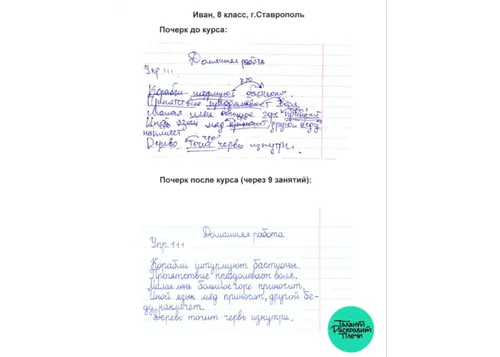 Иван, 8 класс, г.Ставрополь
Почерк до курса:
Домашняя работа
Упр.111.
что
Корабли штурмуют бастионы.
Препятствие преодолевает воля.
Малая большое горе приносит
Иной язык мёд приносит, другой беду
накличет
что
Дерево точит червь изнутри.
Почерк после курса (через 9 занятий):
Домашняя работа
Упр.111
Корабли штурмуют бастионы.
Препятствие преодолевает воля.
большое горе приносит.
Иной язык мёд приносит, другой бе-
ду накличет.
Дерево точит червь изнутри.
Талант
Расправит
Плечи